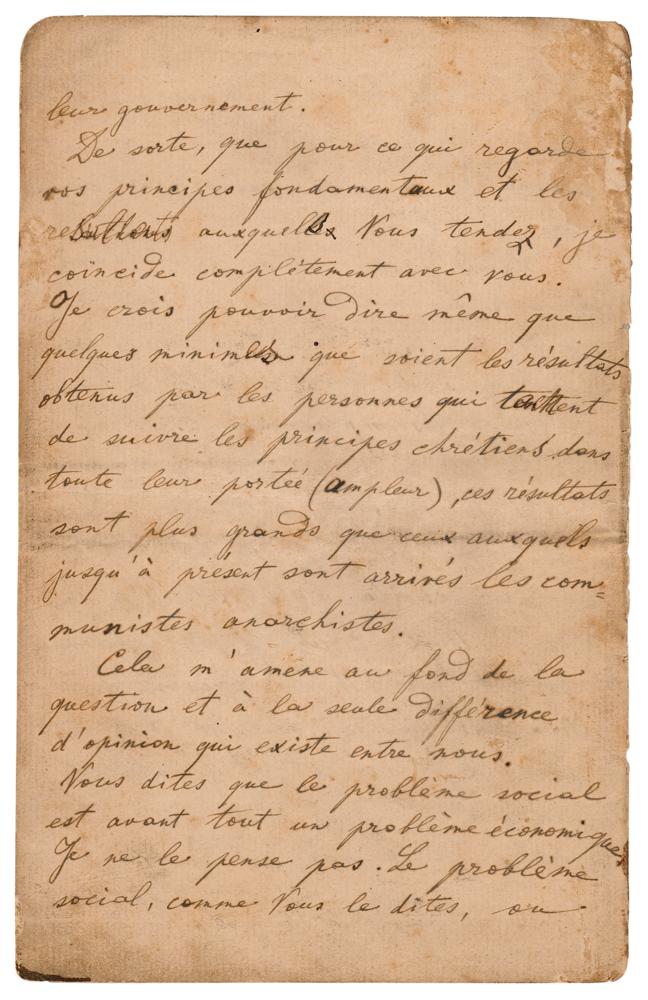 leur gouvernement.
De sorte, que pour ce qui regarde
vos principes fondamentaux et les
resultats auxquels Vous tendez, je
coïncide complétement avec vous.
Je crois pouvoir dire même que
quelques minimes que soient les résultats
obtenus par les personnes qui tachent
de suivre les principes chrétiens dans
toute leur porteé (ampleur), ces résultats
sont plus grands que ceux auxquels
jusqu'à présent sont arrivés les com=
munistes anarchistes.
Cela m'amene au fond de la
question et à la seule différence
d'opinion qui existe entre nous.
Vous dites que le problème social
est avant tout un problème économique.
Je ne le pense pas. Le problème
social, comme Vous le dites, ou